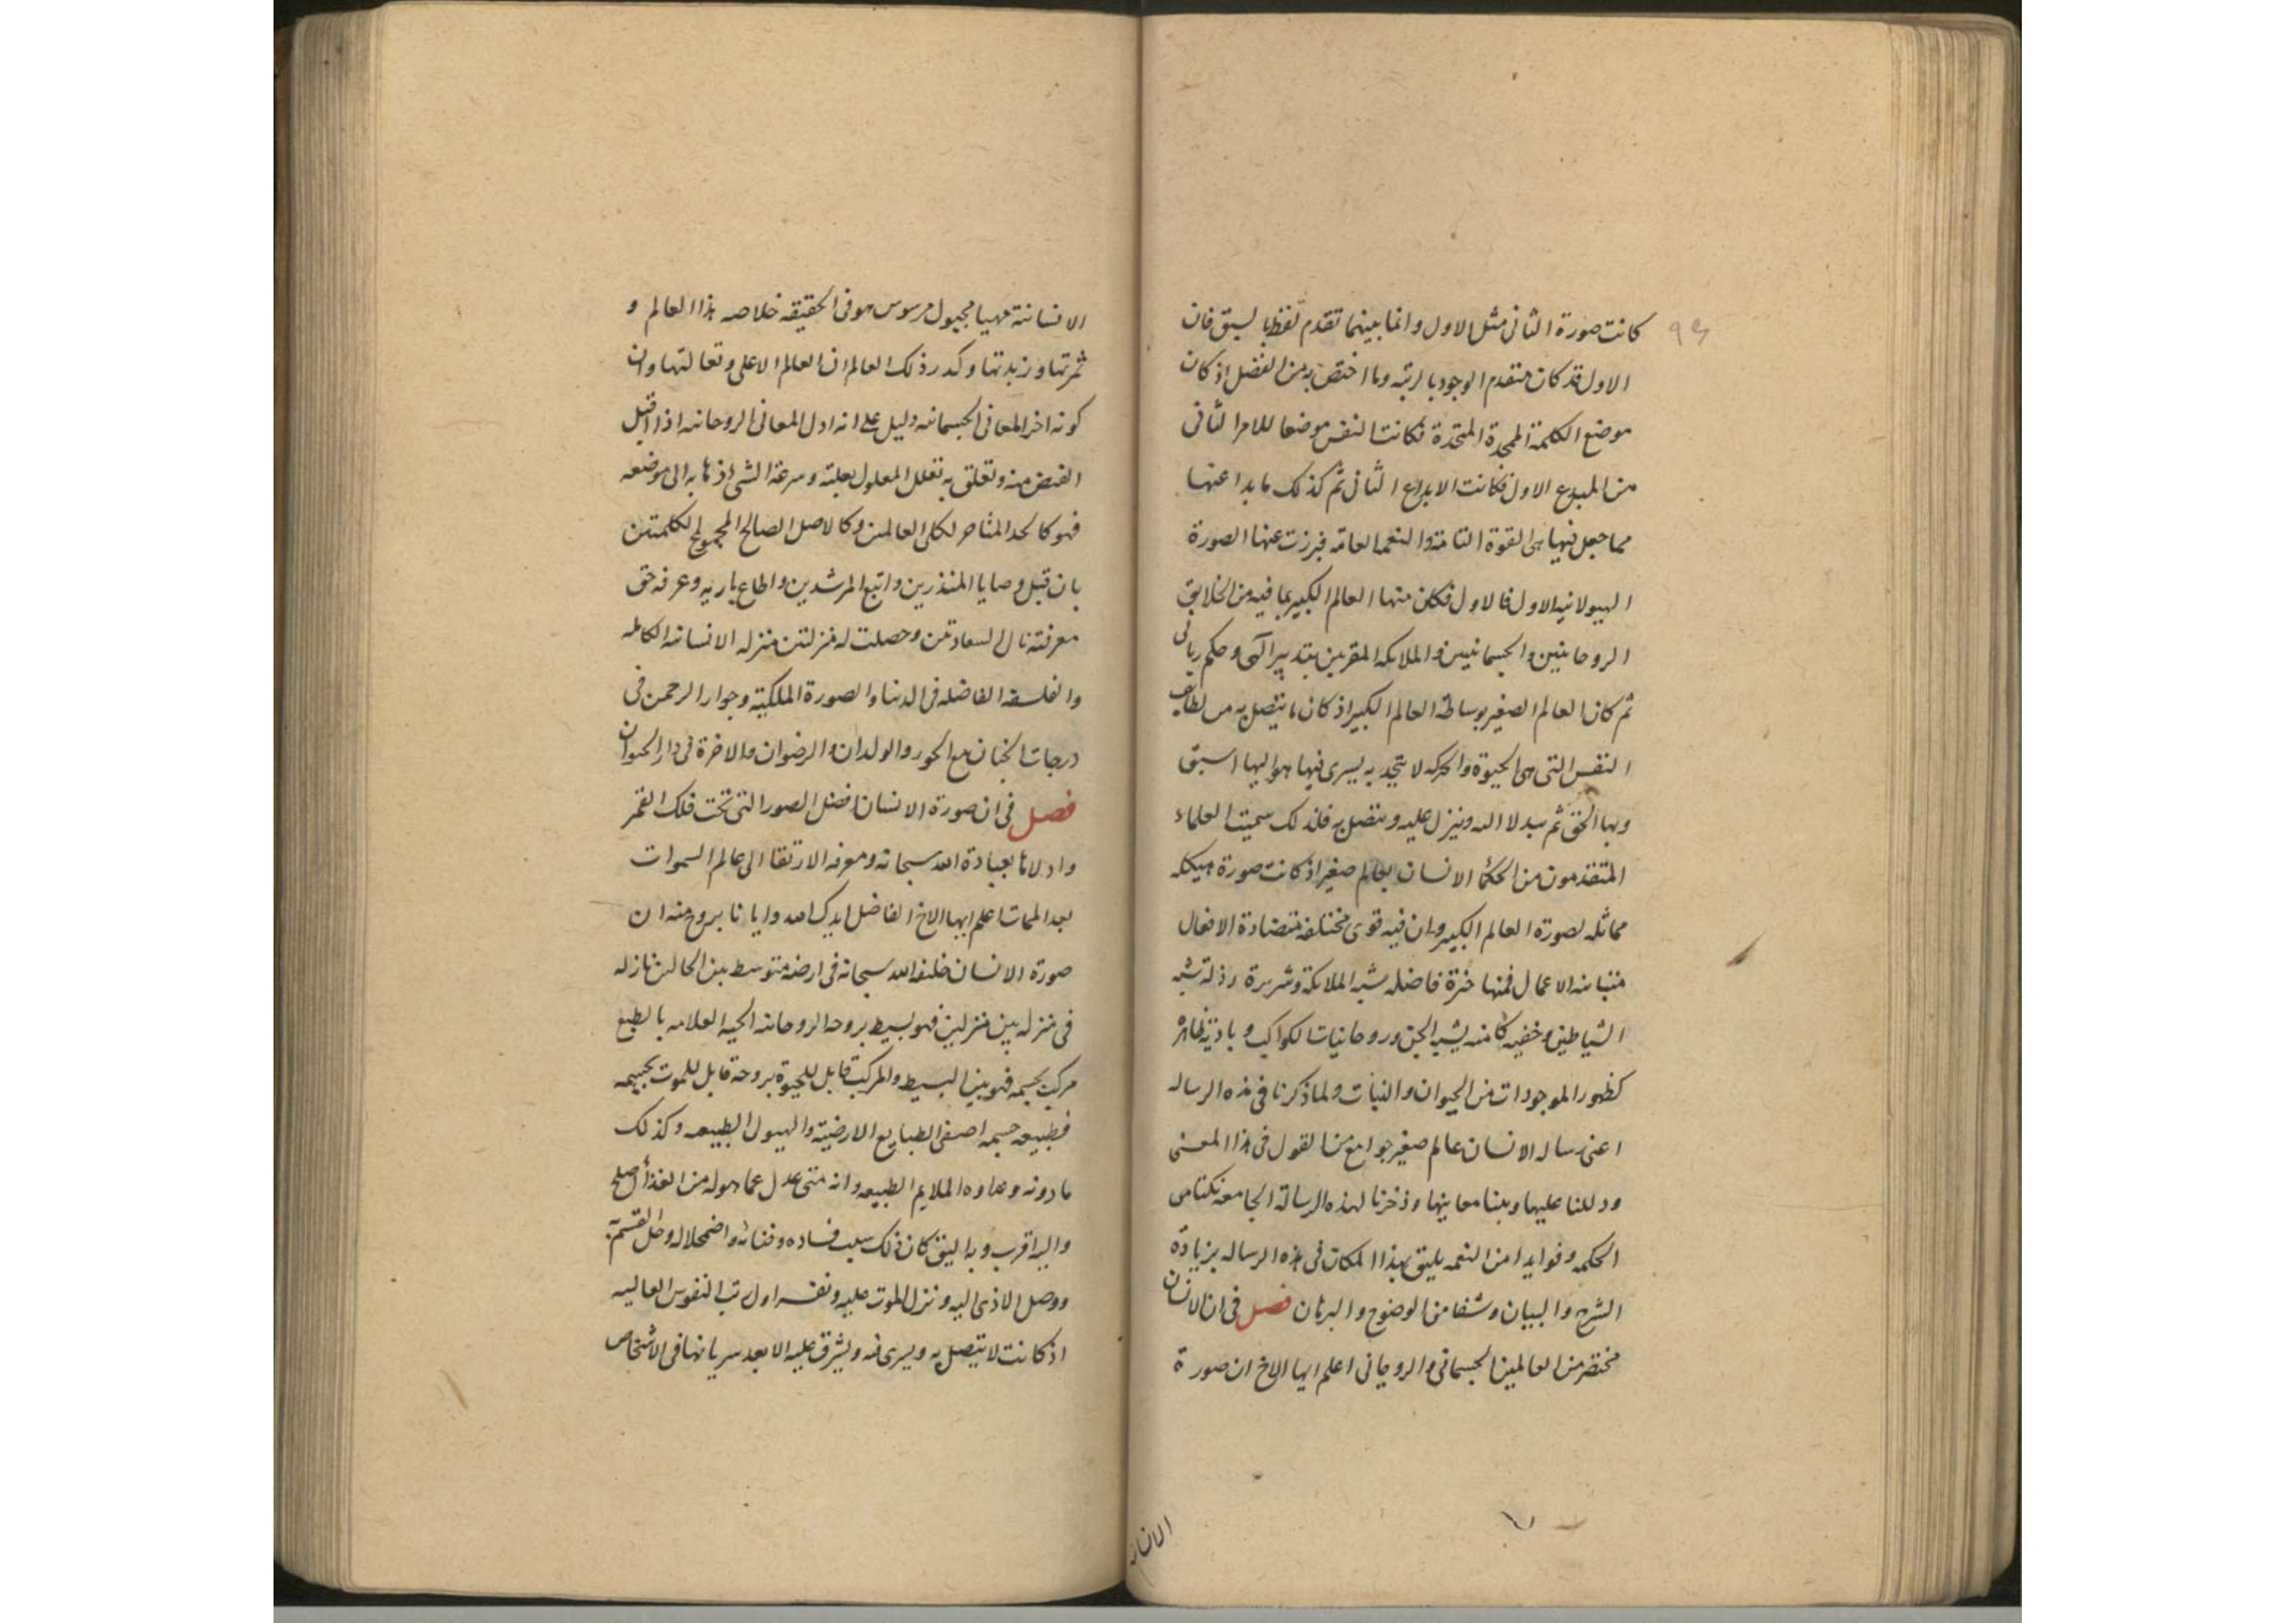 كانت صورة الثانى مثل الاول وانما بينهما تقدم لفظ بالسبق فان
الاول قد كان متقدم الوجود بالرتبه وما اختص به من الفضل اذ كان
موضع الكلمة المتحدة فكانت النفس موضعا للامر الثانى
من المبدع الاول فكانت الابداع الثانى ثم كذلك ما بدا عنها
مما جعل فيها هى القوة التامة والنعم العامه فبرزت عنها الصورة
الهيولانيه الاول فالاول فكان منها العالم الكبير بما فيه من الخلايق
الروحانيين والجسمانيين والملايكه المقربين بتدبير آلهى وحكم ربانى
ثم كان العالم الصغير بوساطة العالم الكبير اذ كان ما يتصل به من لطايف
النفس التى هى الحيوة والحركه لا تتحد به يسرى فيها هو اليها اسبق
وبها الحق ثم وينزل عليه ويتصل به فلذلك سميت العلماء
المتقدمون من الحكما الانسان بعالم صغير اذ كانت صورة هيكله
مماثله لصورة العالم الكبير وان فيه قوى مختلفه متضادة الافعال
متباينه الاعمال فمنها خيرة فاضله شبه الملائكة وشريرة رذلة شبه
الشياطين وخفيه كامنه يشبه الجن وروحانيات الكواكب وبادية ظاهرة
كظهور الموجودات من الحيوان والنبات ولما ذكرنا فى هذه الرساله
اعنى رساله الانسان عالم صغير جوامع من القول فى هذا المعنى
ودللنا عليها وبينا معانيها وذخرنا لهذه الرسالة الجامعه نكتا من
الحكمه وفوايدا من النعمه يليق بهذا المكان فى هذه الرساله بزيادة
الشرح والبيان وشفا من الوضوح والبرهان فصل فى ان الانسان
مختصر من العالمين الجسمانى والروحانى اعلم ايها الاخ ان صورة
الانسانية
الانسانية مهيا مجبول مرسوس هو فى الحقيقه خلاصه هذا العالم و
ثمرتها وزبدتها وكدر ذلك العالم ان العالم الاعلى وان
كونه اخر المعانى الجسمانيه دليل على انه اول المعانى الروحانيه اذا اقبل
الفيض منه وتعلق به تعلل المعلول بعلته وسرعة الشئ اذهابه الى موضعه
فهو كالحد لكلى العالمين وكالاصل الصالح للكلمتين
بان قبل وصايا المنذرين واتبع المرشدين واطاع باريه وعرفه حق
معرفته نال السعادتين وحصلت له منزلتين منزله الانسانيه الكامله
والفلسفه الفاضله فى الدنيا والصورة الملكية وجوار الرحمن فى
درجات الجنان مع الحور والولدان والرضوان والاخرة فى دار الحيوان
فصل فى ان صورة الانسان افضل الصور التى تحت فلك القمر
واولاها بعبادة الله سبحانه ومعرفه الارتقا الى عالم السموات
بعد الممات اعلم ايها الاخ الفاضل ايدك الله وايانا بروح منه ان
صورة الانسان خلقه الله سبحانه فى ارضه متوسط بين الحالين نازله
فى منزله بين منزلين فهو بسيط بروحه الروحانيه الحيه العلامه بالطبع
مركب بجسمه فهو بين البسيط والمركب قابل للحيوة بروحه قابل للموت بجسمه
فطبيعه جسمه اصفى الطبايع الارضية والهيول الطبيعه وكذلك
ما دونه الملايم الطبيعه وانه متى عدل عما هو له من الغذا اصلح
واليه اقرب وبه اليق كان ذلك سبب فساده وفنائه واضمحلاله
ووصل الاذى اليه ونزل الموت عليه ونفسه اول رتب النفوس العاليه
اذ كانت لا يتصل به ويسرى فيه ويشرق عليه الا بعد سريانها فى الاشخاص